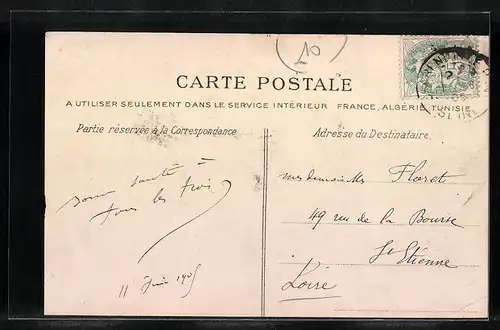 10
CARTE POSTALE
A UTILISER SEULEMENT DANS LE SERVICE INTÉRIEUR FRANCE, ALGÉRIE, TUNISIE.
Partie réservée à la Correspondance
Adresse du Destinataire.
bonne santé à
tous les trois
11 Juin 1905
Mesdemoiselles Floret
49 rue de la Bourse
St Etienne
Loire